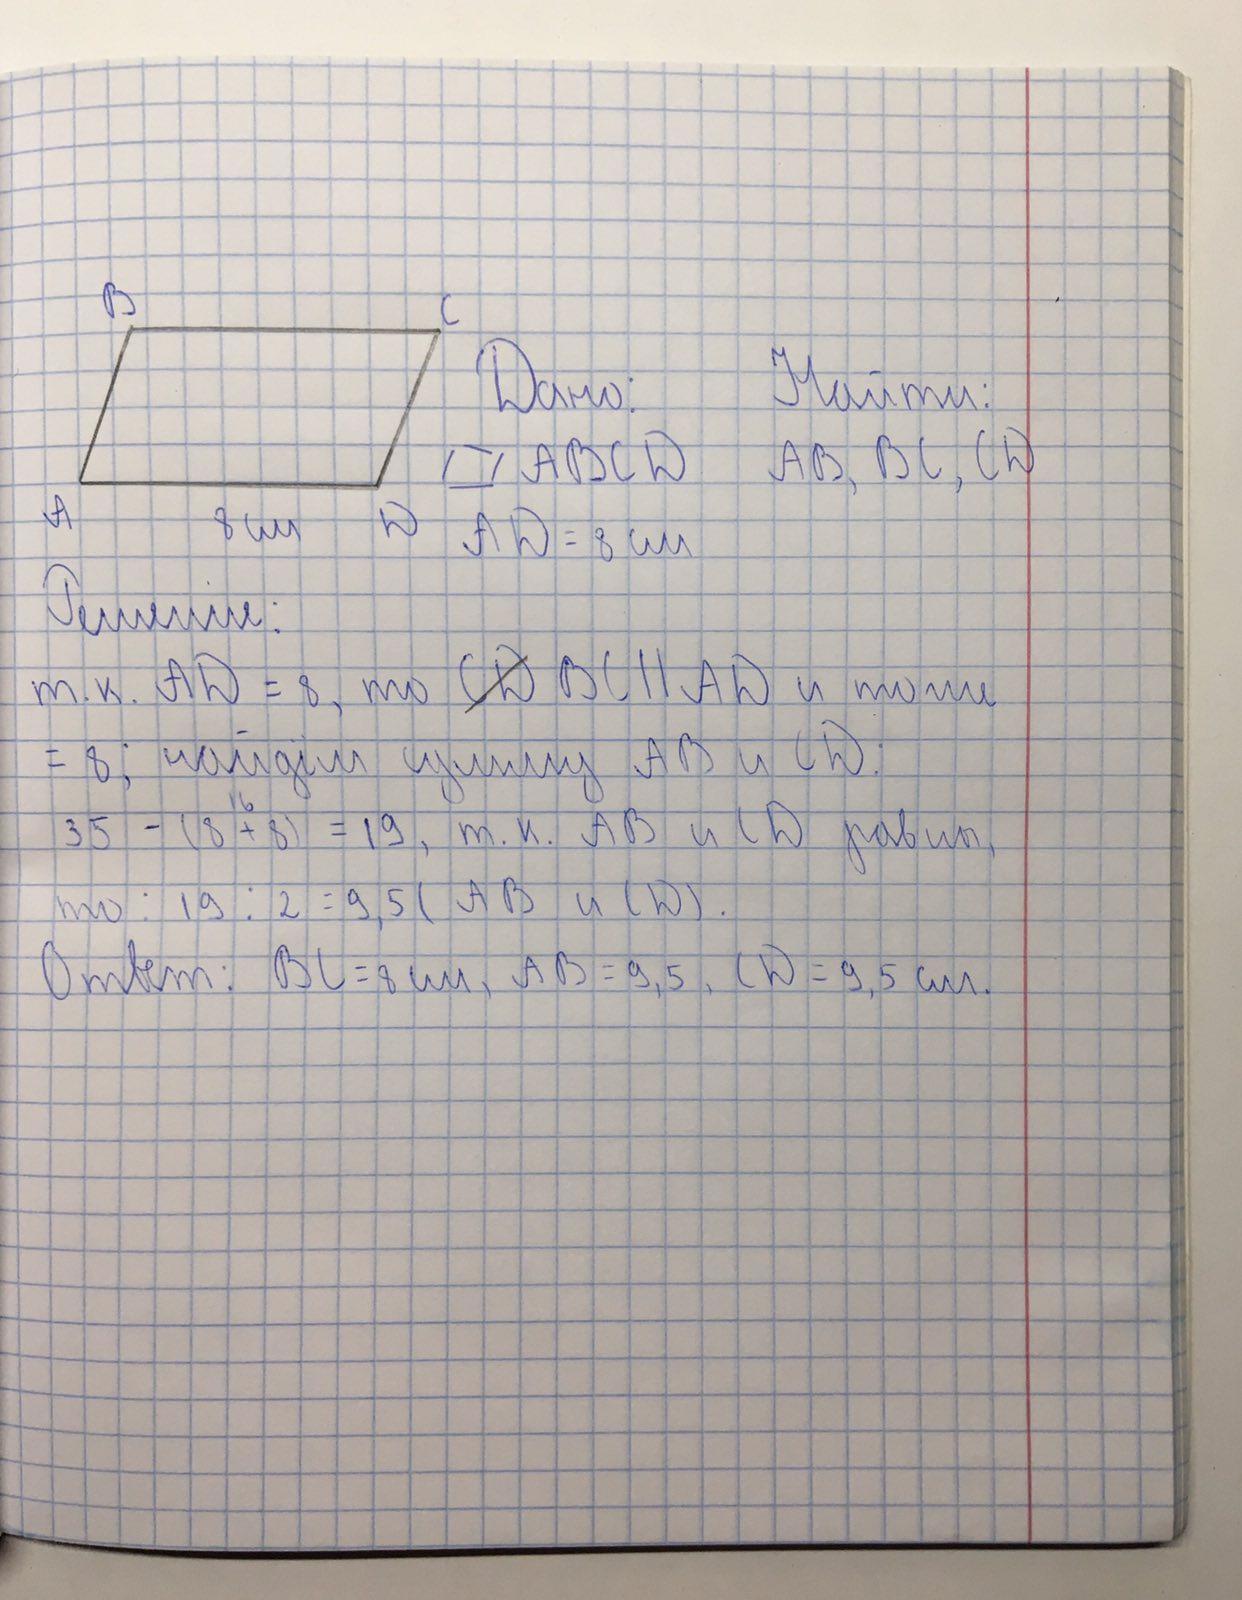 B C
Дано: Найти:
▱ ABCD AB, BC, CD
A 8 см D AD = 8 см
Решение:
т.к. AD = 8, то BC || AD и тоже
= 8; найдём сумму AB и CD:
16
35 - (8 + 8) = 19, т.к. AB и CD равны,
то: 19 : 2 = 9,5 ( AB и CD).
Ответ: BC = 8 см, AB = 9,5, CD = 9,5 см.